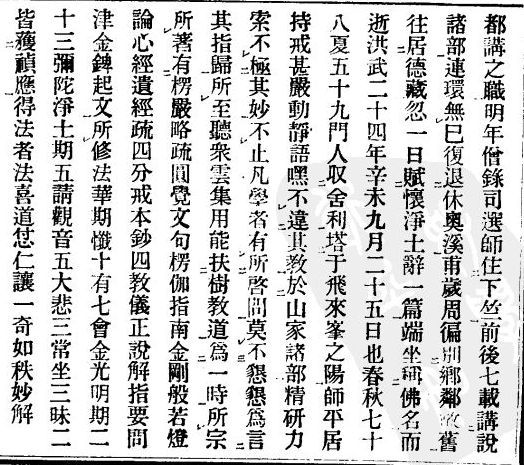 都講之職明年僧錄司選師住下竺前後七載講說
諸部連環無已復退休奧溪甫歲周徧別鄉鄰故舊
往居德藏忽一日賦懷淨土辭一篇端坐稱佛名而
逝洪武二十四年辛未九月二十五日也春秋七十
八夏五十九門人収舍利塔于飛來峯之陽師平居
持戒甚嚴動靜語嘿不違其教於山家諸部精研力
索不極其妙不止凡學者有所啓問莫不懇懇爲言
其指歸所至聽衆雲集用能扶樹教道爲一時所宗
所著有楞嚴略疏圓覺文句楞伽指南金剛般若燈
論心經遺經疏四分戒本鈔四教儀正說解指要問
津金錍起文所修法華期懺十有七會金光明期二
十三彌陀淨土期五請觀音五大悲三常坐三昧二
皆獲禎應得法者法喜道𠍴仁讓一奇如秩妙解